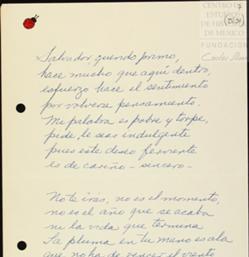 CENTRO DE
ESTUDIOS
DE HISTORIA
DE MEXICO
FUNDACION
Carlos
Salvador querido primo,
hace mucho que aquí dentro,
esfuerzo hace el sentimiento
por volverse pensamiento.
Mi palabra es pobre y torpe,
pide, le seas indulgente
pues este deseo ferviente
es de cariño - sincero -
No te irás, no es el momento,
no es el año que se acaba
ni la vida que termina
La pluma en tu mano es ala
que no ha de vencer el viento